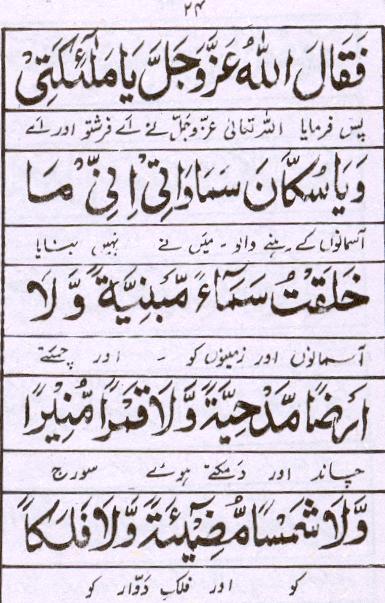 ۲۴
فَقَالَ اللهُ عَزَّ وَجَلَّ يَا مَلَٰٓئِكَتِيْ
پس فرمایا اللہ تعالیٰ عزّ و جلّ نے اے فرشتو اور اے
وَيَا سُكَّانَ سَمَاوَاتِيْ اِنِّيْ مَا
آسمانوں کے رہنے والو ۔ میں نے نہیں بنایا
خَلَقْتُ سَمَآءً مَّبْنِيَّةً وَّلَا
آسمانوں اور زمینوں کو ۔ اور چمکتے
اَرْضًا مَّدْحِيَّةً وَّلَا قَمَرًا مُّنِيْرًا
چاند اور دمکتے ہوئے سورج
وَّلَا شَمْسًا مُّضِيْٓئَةً وَّلَا فَلَكًا
کو اور فلکِ دوّار کو